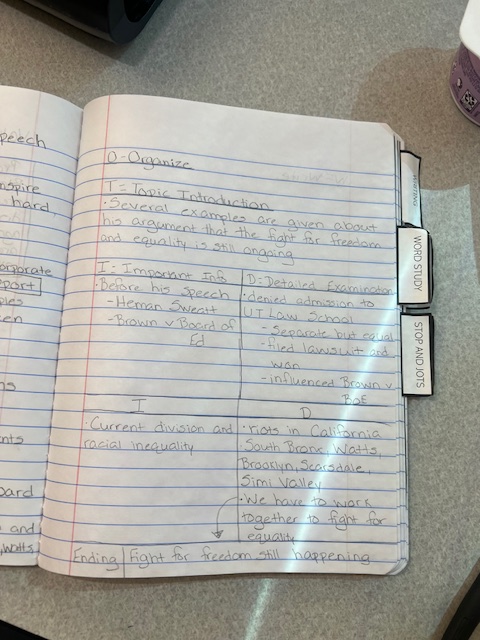 peech
nspire
hard,
orporate
eport
ples
en
ns
nts
oard
and
, Watts
O-Organize
T = Topic Introduction
· Several examples are given about
his argument that the fight for freedom
and equality is still ongoing
I = Important Info
· Before his speech
- Heman Sweatt
- Brown v Board of
Ed
D = Detailed Examination
· denied admission to
UT Law School
- Separate but equal
- filed lawsuit and
won
- influenced Brown v
BOE
I
· Current division and
racial inequality
D
· riots in California
South Bronx, Watts,
Brooklyn, Scarsdale,
Simi Valley
· We have to work
together to fight for
equality
Ending
Fight for freedom still happening
WORD STUDY
STOP AND JOTS